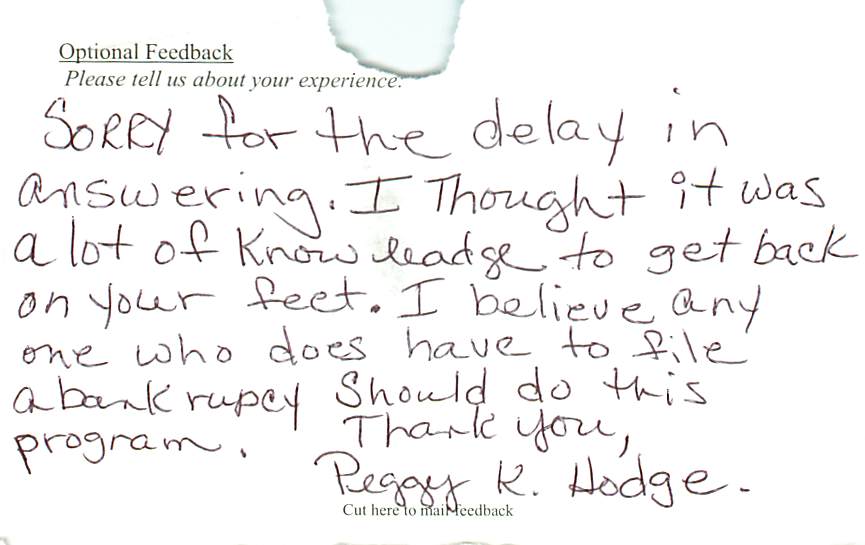 Optional Feedback
Please tell us about your experience.
SORRY for the delay in
answering. I Thought it was
a lot of Knowleadge to get back
on your feet. I believe any
one who does have to file
a bankrupcy Should do this
program. Thank you,
Peggy K. Hodge.
Cut here to mail feedback